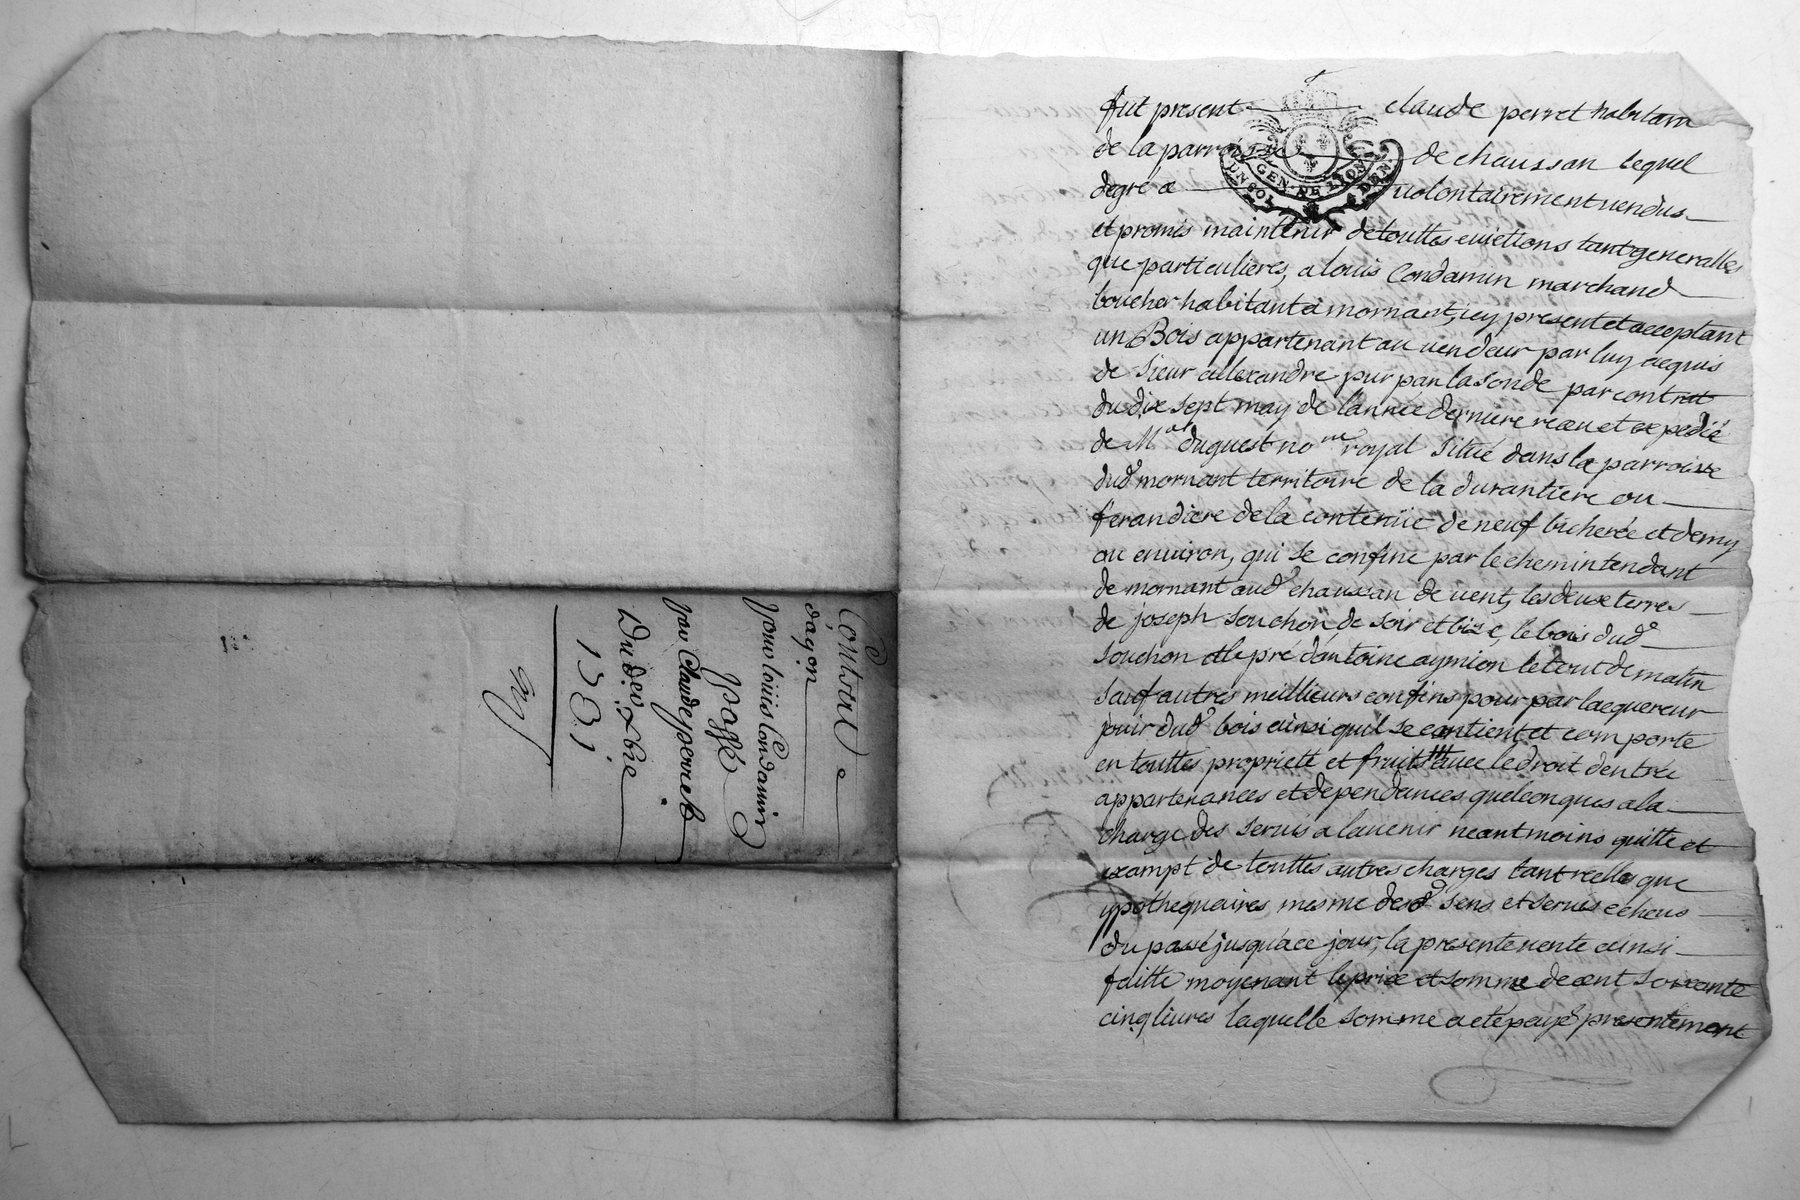 Contract
d'aqon
pour louis Condamin
passé
par Claude perret
Du dix xbre
1731
fut present claude perret habitant
de la parroisse de chaussan lequel
degré a volontairement vendus
et promis maintenir de touttes evictions tant generalles
que particulieres, a louis Condamin marchand
boucher habitant a mornant, icy present et acceptant
un Bois appartenant au vendeur par luy acquis
de sieur alexandre pur par la sonde par contrat
du dix sept may de l'année derniere receu et expedié
de Me duguest nore royal situé dans la parroisse
dud mornant territoire de la durantiere ou
ferandiere de la contenüe de neuf bicherée et demy
ou environ, qui se confine par le chemin tendant
de mornant aud chaussan de vent, les deux terres
de joseph souchon, de soir et bize, le bois dud
souchon et le pré d'antoine aymion le tout de matin
sauf autres meillieurs confins pour par lacquereur
jouir dud bois ainsi quil se contient et comporte
en touttes proprieté et fruits avec le droit dentrée
appartenances et dependances quelconques a la
charge des servis a lavenir neantmoins quitte et
exempt de touttes autres charges tant reelles que
ypothequaires mesme desd sens et servis echeus
du passé jusqu'a ce jour, la presente vente ainsi
faitte moyenant le prix et somme de cent soixante
cinq livres laquelle somme a eté payé presentement
GEN. DE LYON
UN SOL
DEN.